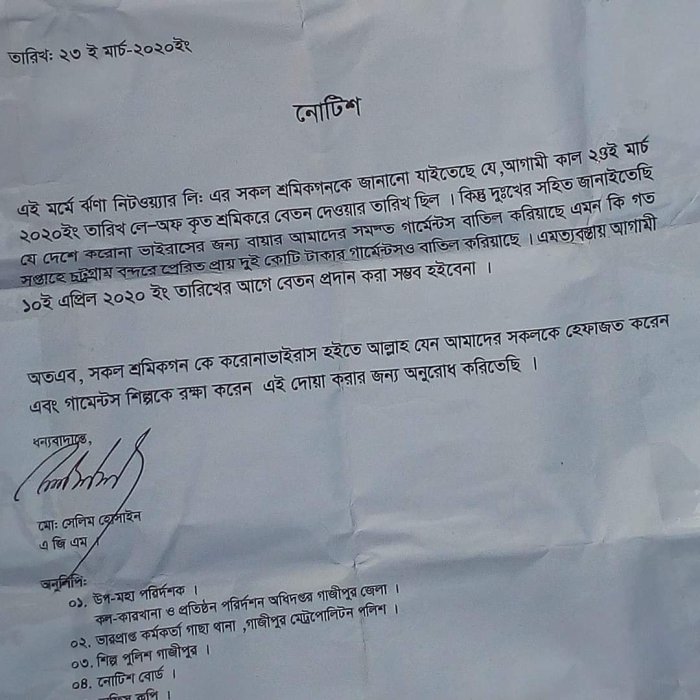 তারিখ: ২৩ ই মার্চ-২০২০ইং
নোটিশ
এই মর্মে ঝর্ণা নিটওয়্যার লি: এর সকল শ্রমিকগনকে জানানো যাইতেছে যে,আগামী কাল ২৪ই মার্চ
২০২০ইং তারিখ লে-অফ কৃত শ্রমিকরে বেতন দেওয়ার তারিখ ছিল । কিন্তু দুঃখের সহিত জানাইতেছি
যে দেশে করোনা ভাইরাসের জন্য বায়ার আমাদের সমস্ত গার্মেন্টস বাতিল করিয়াছে এমন কি গত
সপ্তাহে চট্টগ্রাম বন্দরে প্রেরিত প্রায় দুই কোটি টাকার গার্মেন্টসও বাতিল করিয়াছে । এমতাবস্থায় আগামী
১০ই এপ্রিল ২০২০ ইং তারিখের আগে বেতন প্রদান করা সম্ভব হইবেনা ।
অতএব, সকল শ্রমিকগন কে করোনাভাইরাস হইতে আল্লাহ যেন আমাদের সকলকে হেফাজত করেন
এবং গার্মেন্টস শিল্পকে রক্ষা করেন এই দোয়া করার জন্য অনুরোধ করিতেছি ।
ধন্যবাদান্তে,
মো: সেলিম হোসাইন
এ জি এম
অনুলিপি:
০১. উপ-মহা পরিদর্শক ।
কল-কারখানা ও প্রতিষ্ঠন পরিদর্শন অধিদপ্তর গাজীপুর জেলা ।
০২. ভারপ্রাপ্ত কর্মকর্তা গাছা থানা ,গাজীপুর মেট্রোপোলিটন পুলিশ ।
০৩. শিল্প পুলিশ গাজীপুর ।
০৪. নোটিশ বোর্ড ।
কপি ।